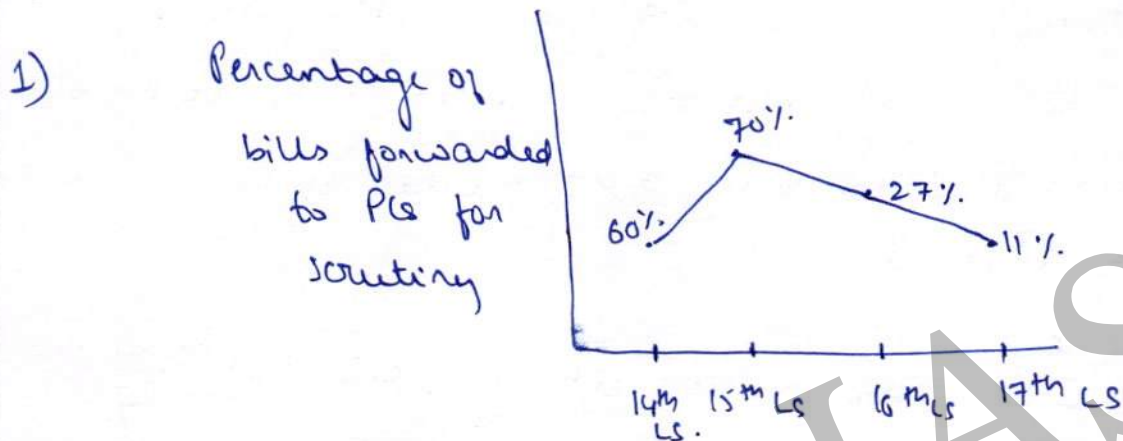 1)
Percentage of
bills forwarded
to PCs for
scrutiny
70%.
60%.
27%.
11%.
14th LS.
15th LS
16th LS
17th LS
IAS